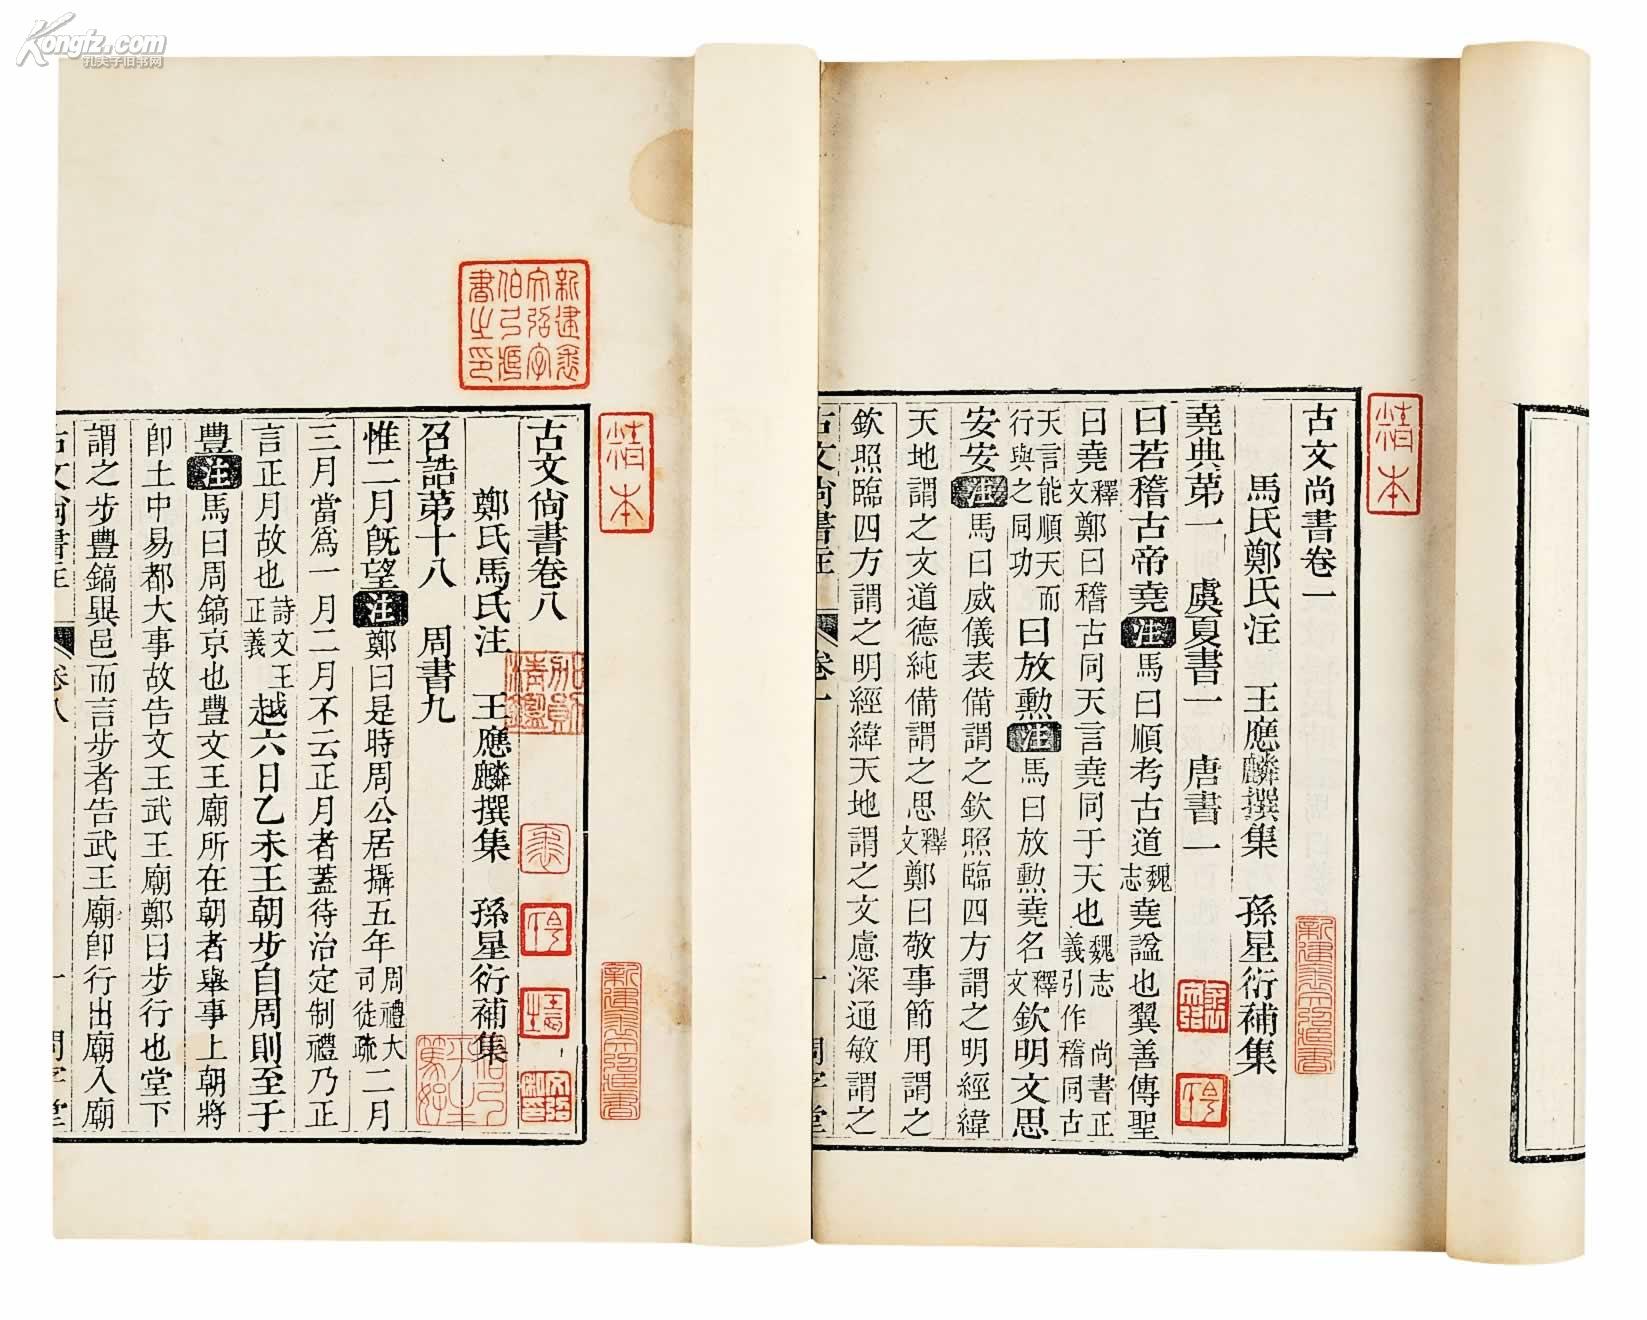 Kongfz.com
孔夫子旧书网
古文尚書卷一
馬氏鄭氏注 王應麟撰集 孫星衍補集
堯典第一 虞夏書一 唐書一
曰若稽古帝堯注馬曰順考古道魏志堯諡也翼善傳聖
曰堯釋文鄭曰稽古同天言堯同于天也魏志義引作稽同古尚書正
天言能順天而行與之同功曰放勲注馬曰放勲堯名釋文欽明文思
安安注馬曰威儀表備謂之欽照臨四方謂之明經緯
天地謂之文道德純備謂之思釋文鄭曰敬事節用謂之
欽照臨四方謂之明經緯天地謂之文慮深通敏謂之
古文尚書注 卷一 一 問字堂
精本
古文尚書卷八
鄭氏馬氏注 王應麟撰集 孫星衍補集
召誥第十八 周書九
惟二月旣望注鄭曰是時周公居攝五年周禮大司徒疏二月
三月當爲一月二月不云正月者蓋待治定制禮乃正
言正月故也詩文王正義越六日乙未王朝步自周則至于
豐注馬曰周鎬京也豐文王廟所在朝者舉事上朝將
卽土中易都大事故告文王武王廟鄭曰步行也堂下
謂之步豐鎬異邑而言步者告武王廟卽行出廟入廟
古文尚書注 卷八 一 問字堂
精本